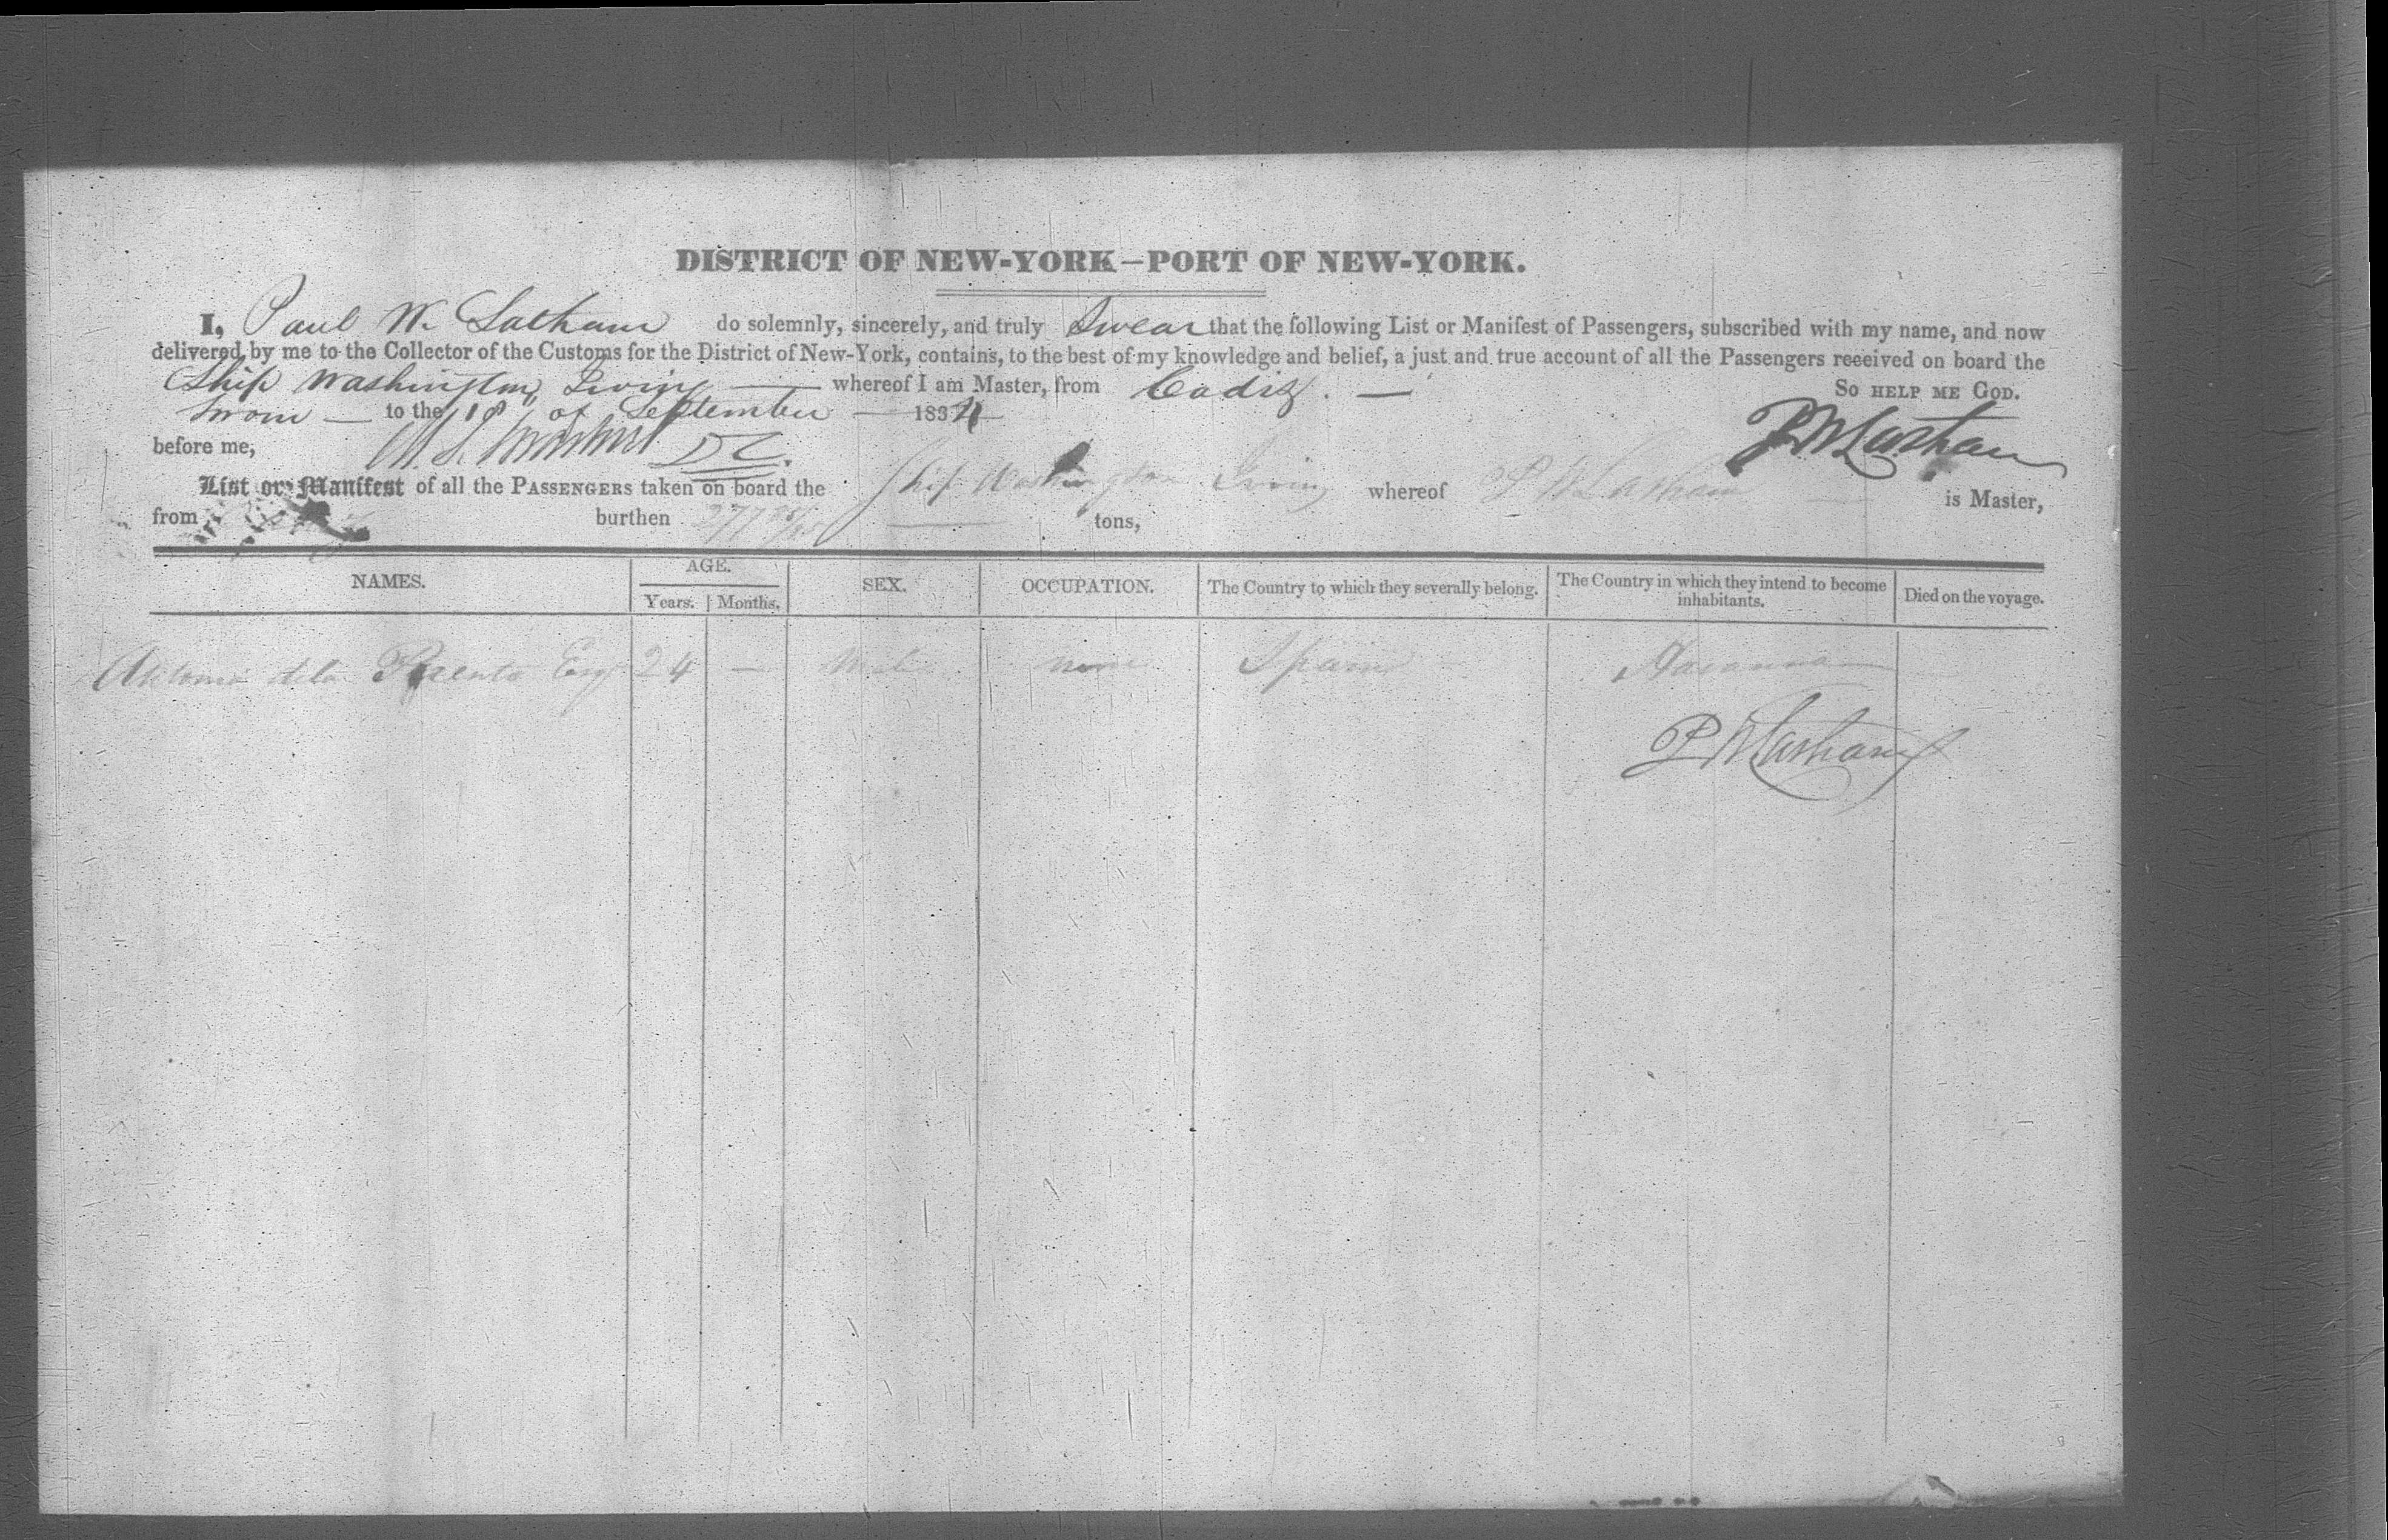 DISTRICT OF NEW-YORK—PORT OF NEW-YORK.
I, Paul W. Latham do solemnly, sincerely, and truly Swear that the following List or Manifest of Passengers, subscribed with my name, and now
delivered by me to the Collector of the Customs for the District of New-York, contains, to the best of my knowledge and belief, a just and true account of all the Passengers received on board the
Ship Washington Irving — whereof I am Master, from Cadiz. —
So HELP ME GOD.
Sworn — to the 18 of September — 1834
P W Latham
before me,
List or Manifest of all the PASSENGERS taken on board the Ship Washington Irving whereof P W Latham is Master,
from burthen tons,
NAMES. AGE. SEX. OCCUPATION. The Country to which they severally belong. The Country in which they intend to become inhabitants. Died on the voyage.
Years. Months.
Antonio dela Esq 24 — Male none Spain
P W Latham